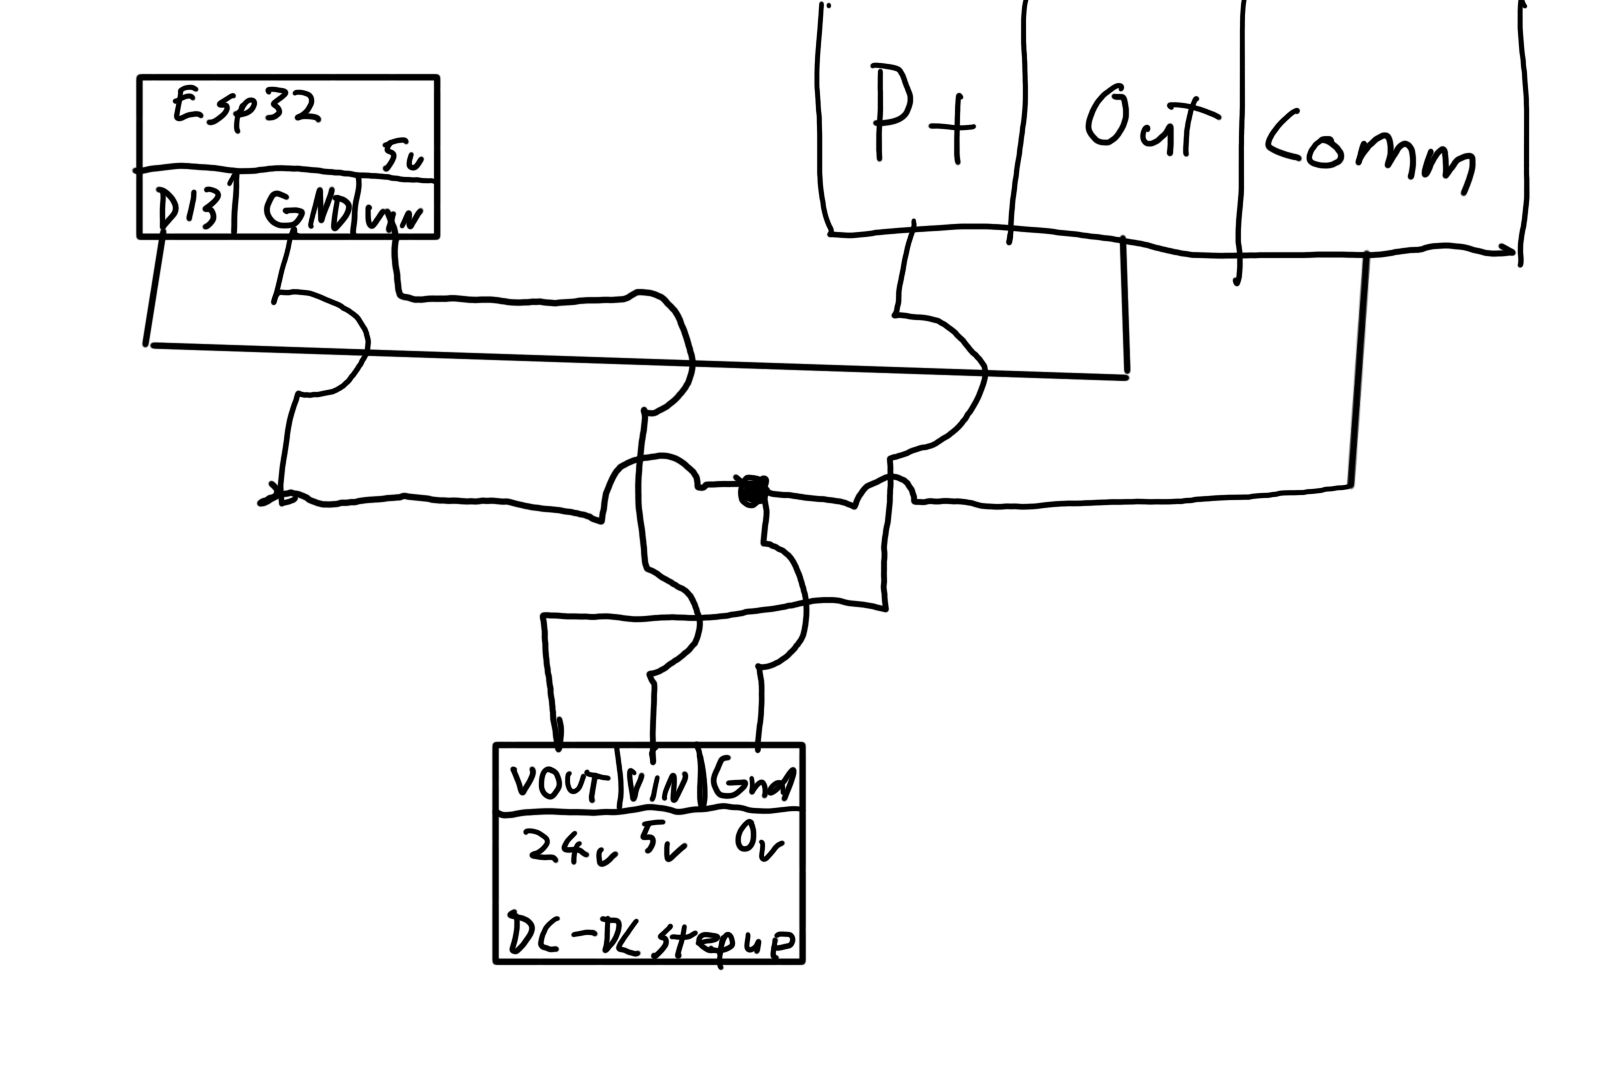 Esp32
5v
D13 GND VIN
P+ Out Comm
VOUT VIN Gnd
24v 5v 0v
DC-DC stepup